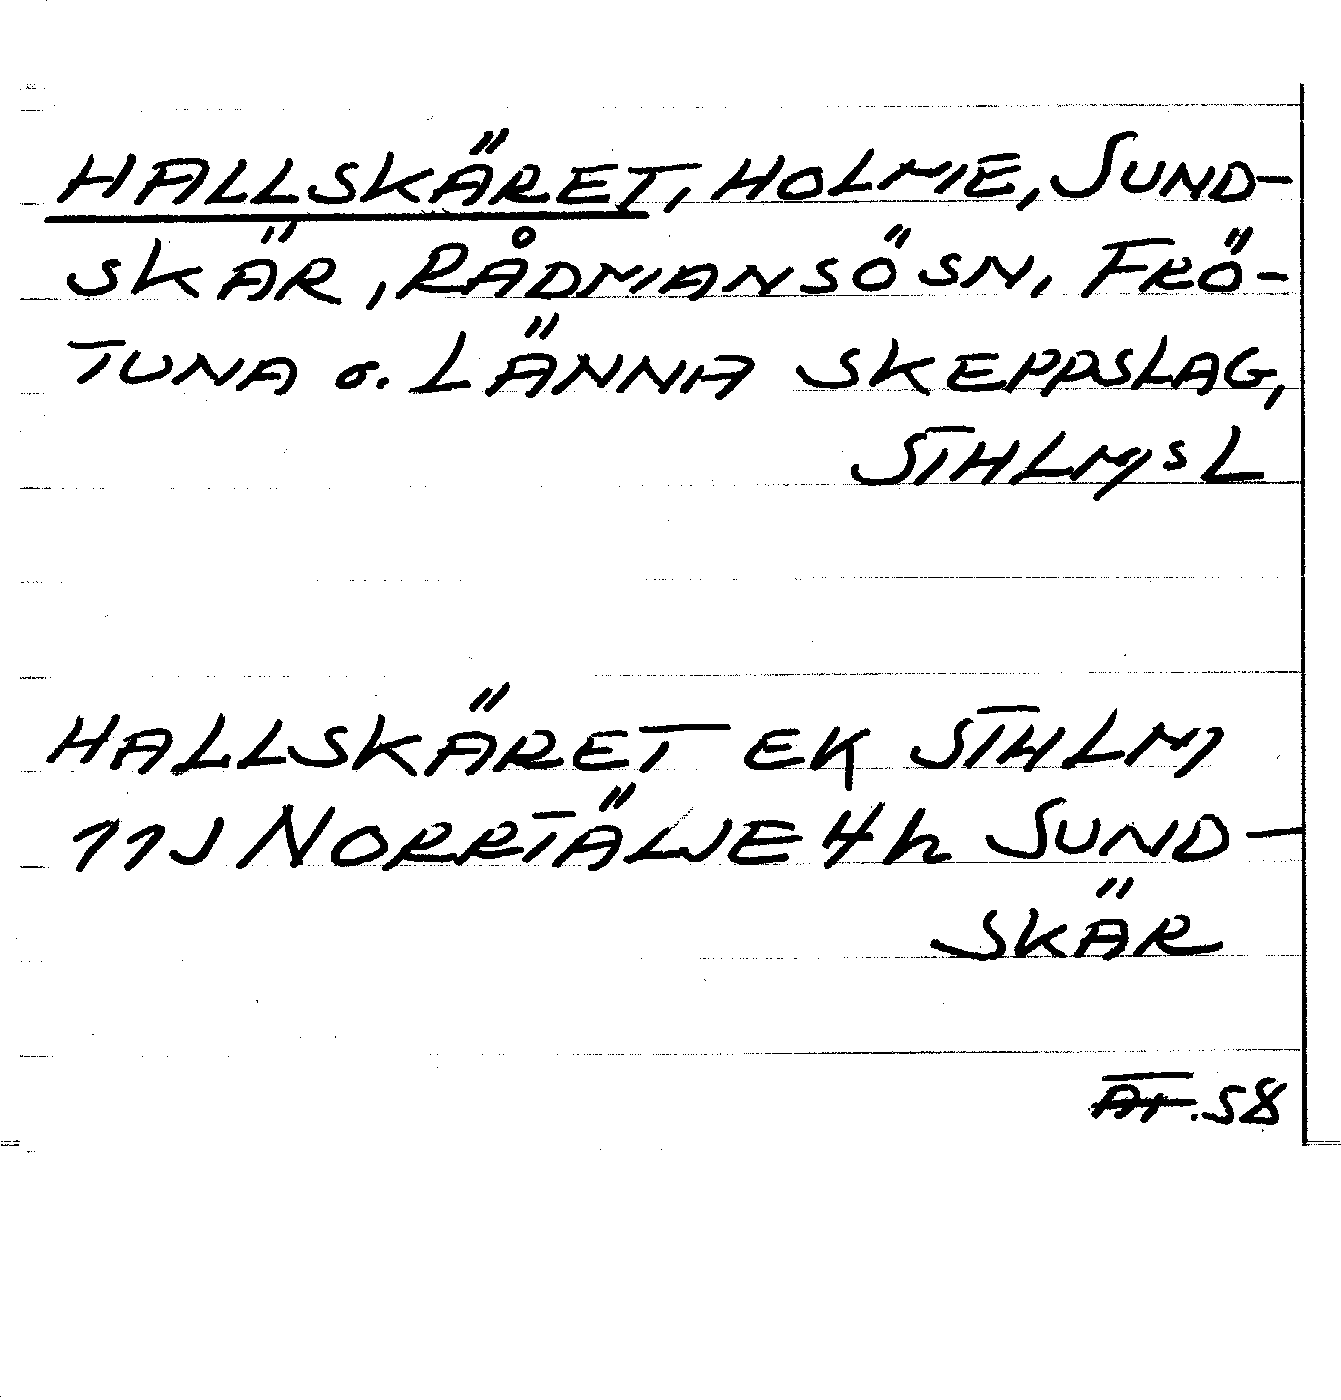 HALLSKÄRET, HOLME, SUND-
SKÄR, RÅDMANSÖ SN, FRÖ-
TUNA o. LÄNNA SKEPPSLAG,
STHLMS L
HALLSKÄRET EK STHLM
11J NORRTÄLJE 4h SUND-
SKÄR
58